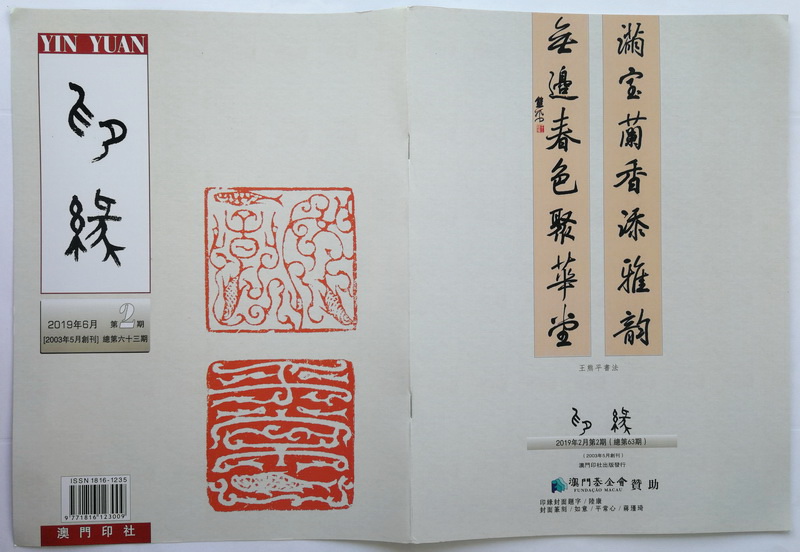 YIN YUAN
印
緣
2019年6月 第2期
[2003年5月創刊] 總第六十三期
ISSN 1816-1235
9 771816 123009
澳門印社
滿室蘭香添雅韵
無邊春色聚華堂
王熊平書法
印緣
2019年2月第2期（總第63期）
（2003年5月創刊）
澳門印社出版發行
澳門基金會 贊助
FUNDAÇÃO MACAU
印緣封面題字 / 陸康
封面篆刻 / 如意 / 平常心 / 蔣瑾琦